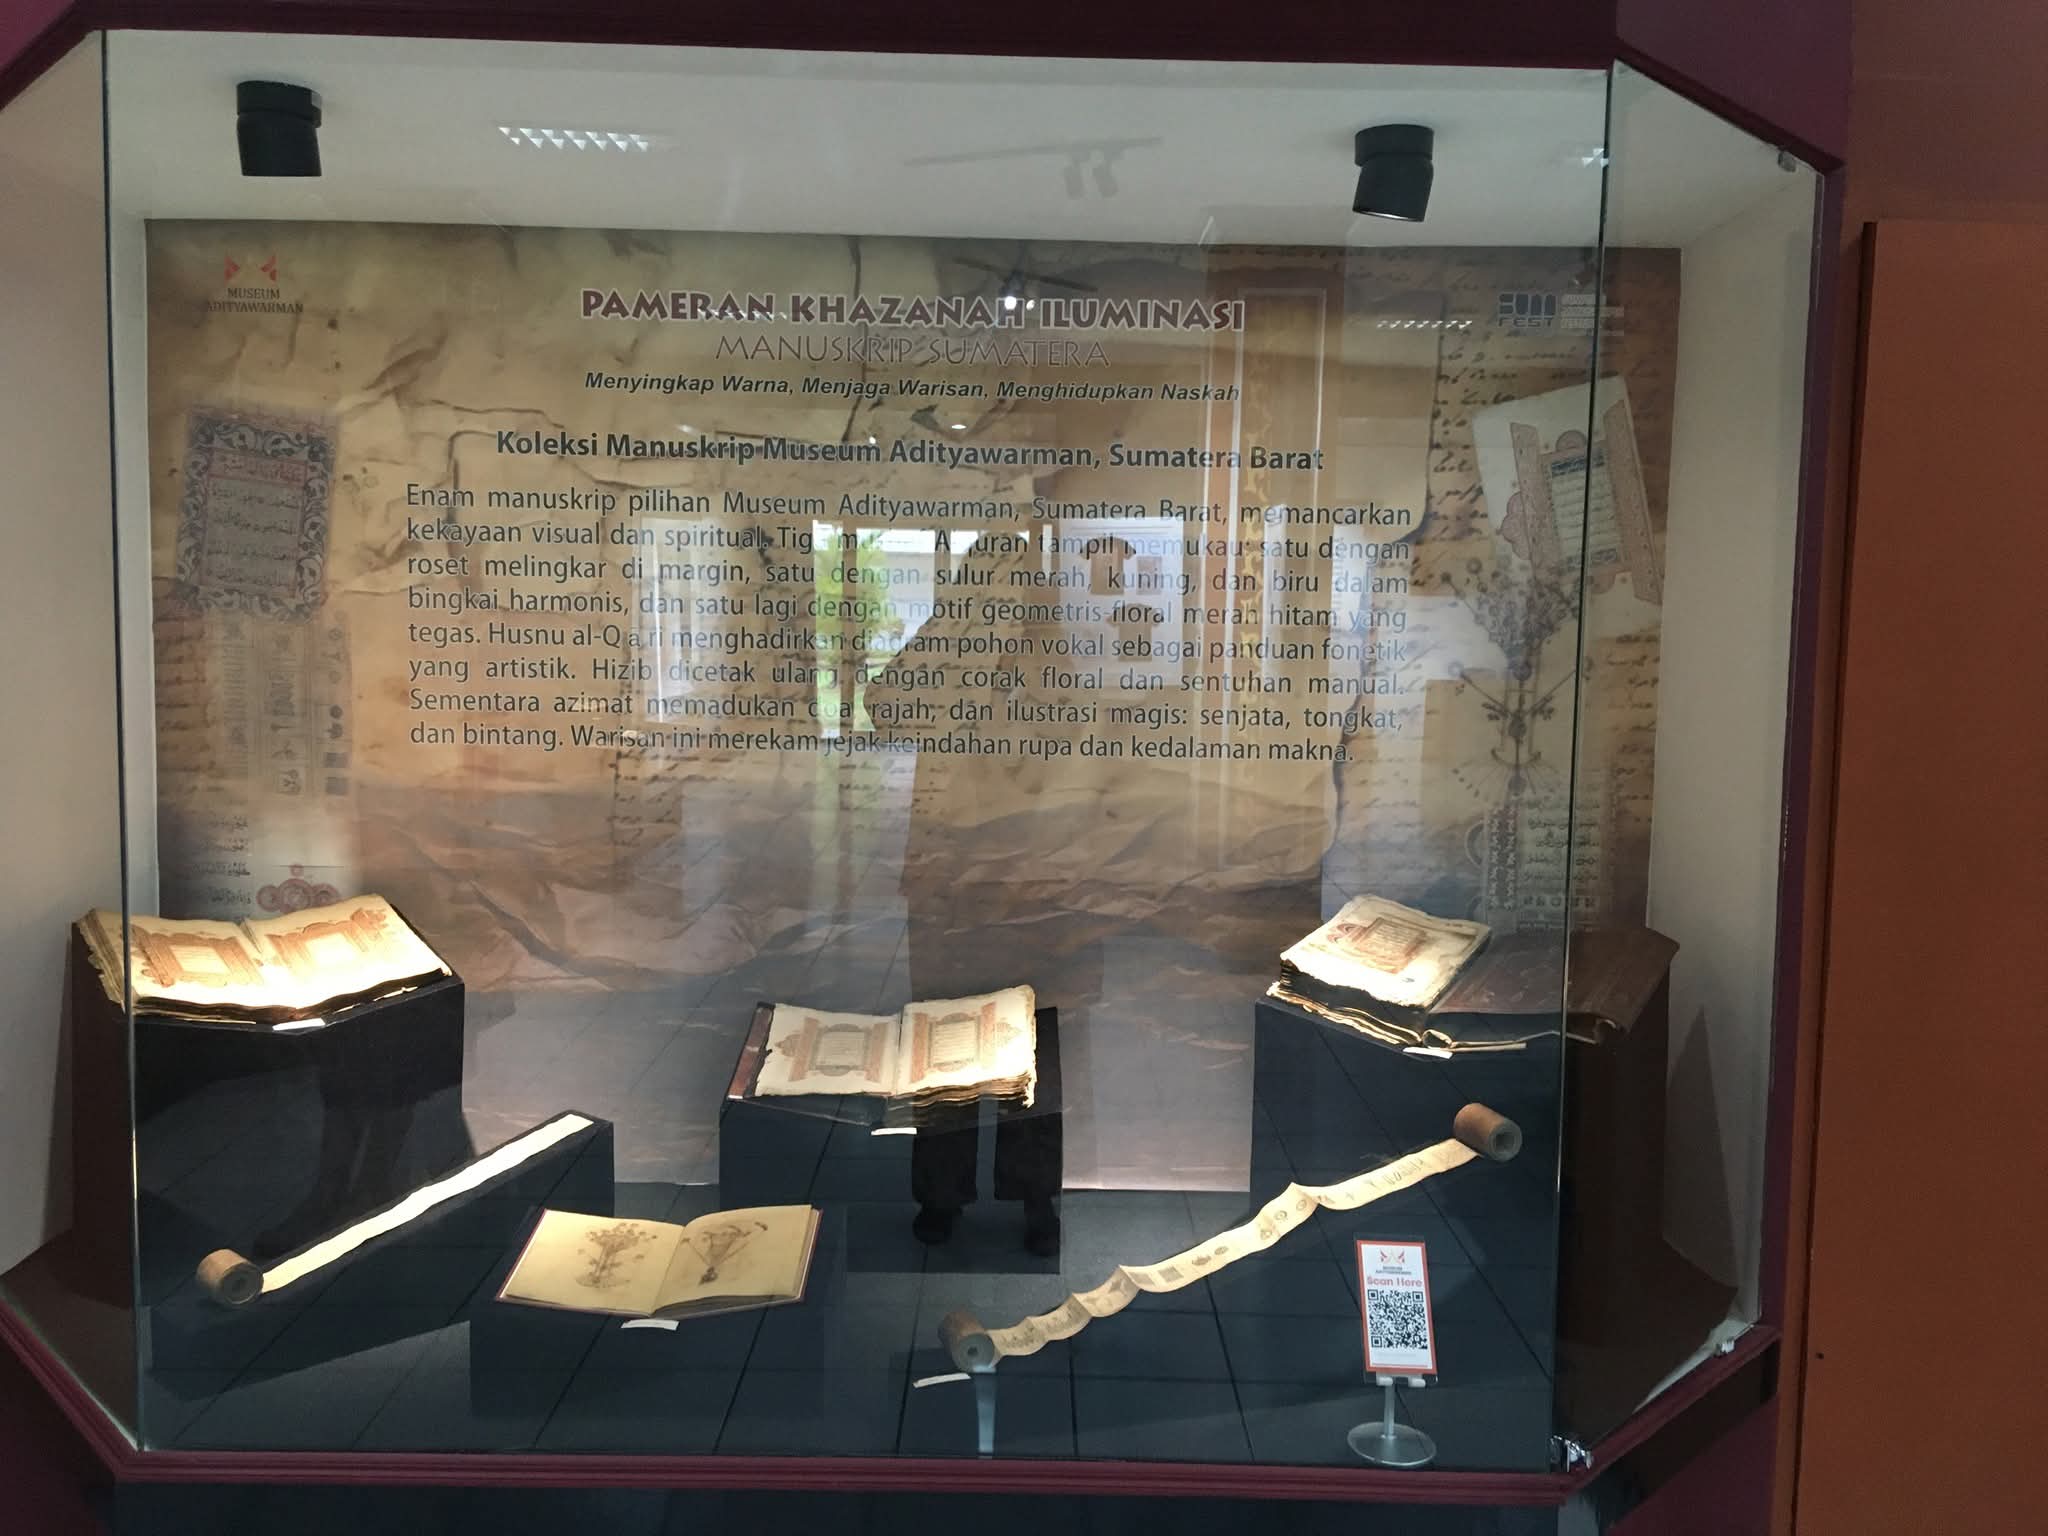 MUSEUM
ADITYAWARMAN
PAMERAN KHAZANAH ILUMINASI
MANUSKRIP SUMATERA
Menyingkap Warna, Menjaga Warisan, Menghidupkan Naskah
FEST
Koleksi Manuskrip Museum Adityawarman, Sumatera Barat
Enam manuskrip pilihan Museum Adityawarman, Sumatera Barat, memancarkan
kekayaan visual dan spiritual. tampil memukau: satu dengan
roset melingkar di margin, satu dengan sulur merah, kuning, dan biru dalam
bingkai harmonis, dan satu lagi dengan motif geometris-floral merah hitam yang
tegas. Husnu al-Qari menghadirkan diagram pohon vokal sebagai panduan fonetik
yang artistik. Hizib dicetak ulang dengan corak floral dan sentuhan manual.
Sementara azimat memadukan doa, rajah, dan ilustrasi magis: senjata, tongkat,
dan bintang. Warisan ini merekam jejak keindahan rupa dan kedalaman makna.
MUSEUM
ADITYAWARMAN
Scan Here